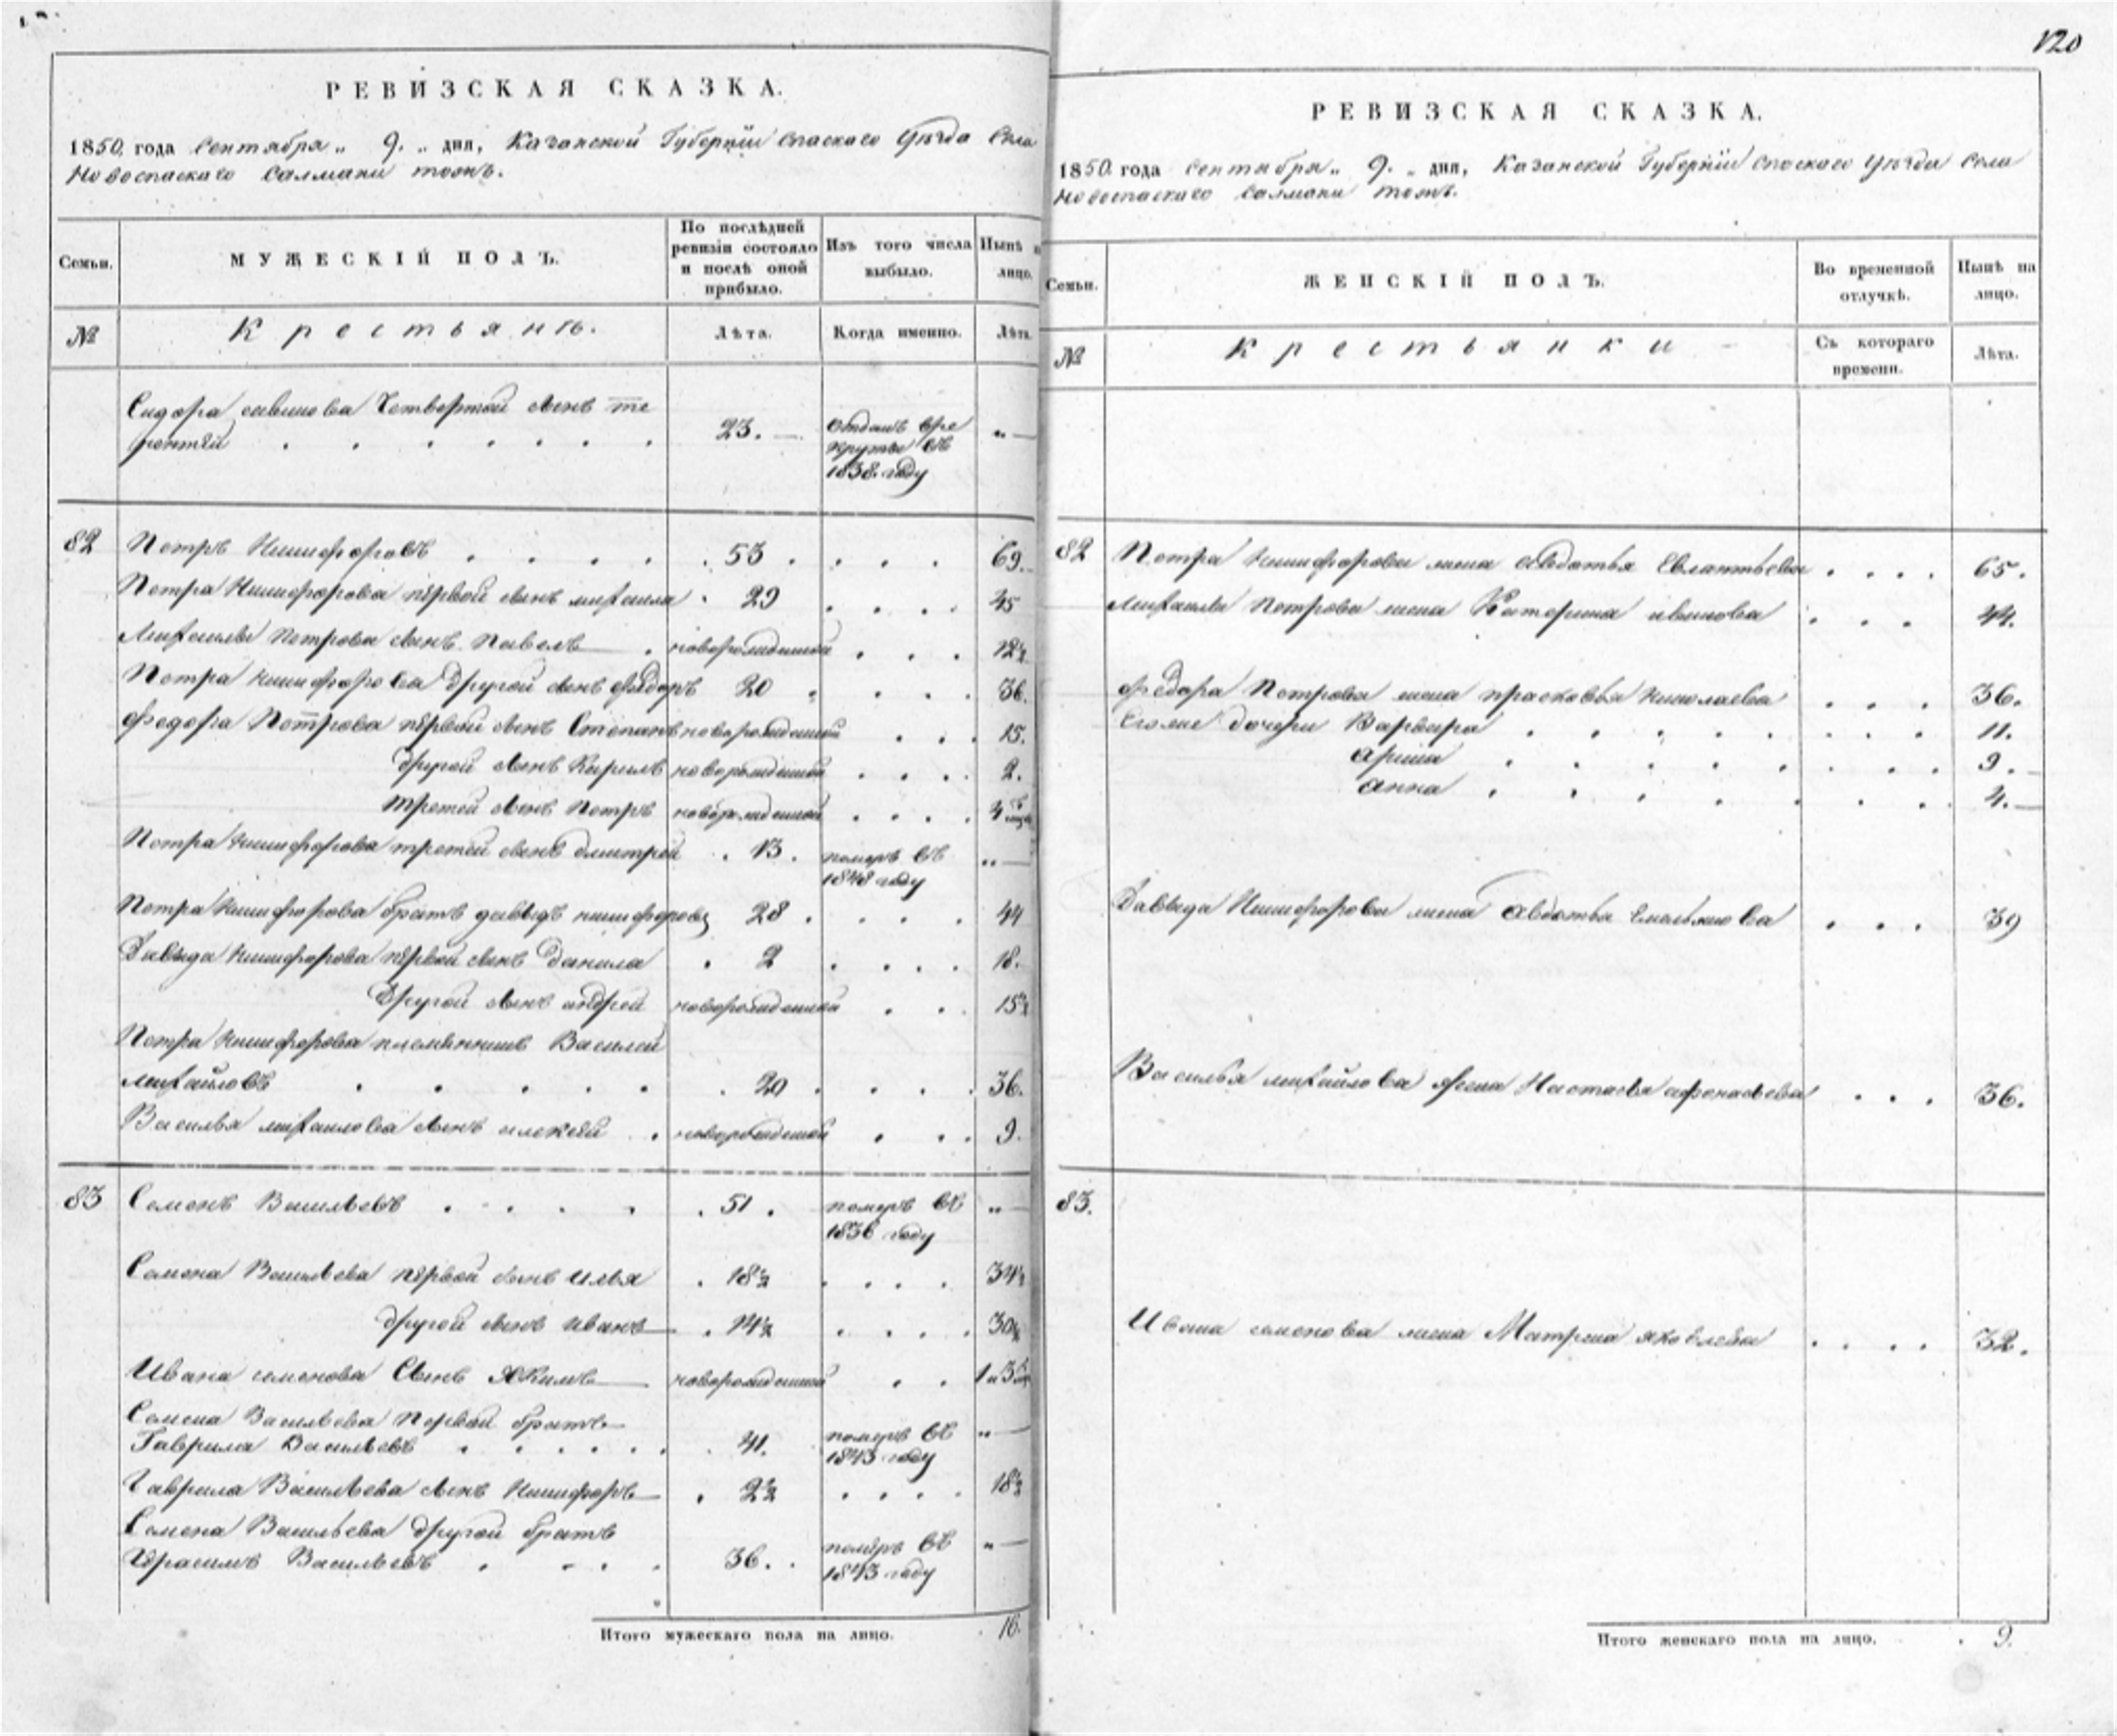 120
РЕВИЗСКАЯ СКАЗКА.
1850. года сентября „ 9. „ дня, Казанской Губерніи Спаскаго Уѣзда Села
Новоспаскаго Салманы тожъ.
Семьи.
МУЖЕСКІЙ ПОЛЪ.
По послѣдней ревизіи состояло и послѣ оной прибыло.
Изъ того числа выбыло.
Нынѣ н лицо.
№
Крестьянъ.
Лѣта.
Когда именно.
Лѣта.
Сидора савинова Четвертой сынъ те
рентей 23. отданъ вре „
круты въ
1838. году
82 Петръ Никифоровъ 53 69.
Петра Никифорова первой сынъ михаила 29 45
Михаилы Петрова сынъ Павелъ новорожденной 12½
Петра Никифорова другой сынъ Федоръ 20 36.
Федора Петрова первой сынъ Степанъ новорожденной 15.
другой сынъ Кирилъ новорожденной 2.
третей сынъ Петръ новорожденной 4
Петра Никифорова третей сынъ дмитрей 13. померъ въ „
1848 году
Петра Никифорова братъ давыдъ никифоровъ 28 44
Давыда Никифорова первой сынъ Данила 2 18.
Другой сынъ андрей новорожденной 15½
Петра Никифорова племянникъ Василей
михайловъ 20 36.
Василья михаилова сынъ алексей новорожденной 9.
83 Семенъ Васильевъ 51. померъ въ „
1836 году
Семена Васильева первой сынъ илья 18½ 34½
другой сынъ иванъ 14½ 30½
Ивана семенова Сынъ Якимъ новорожденной 1 и 3
Семена Васильева Первой братъ
Гаврила Васильевъ 41. померъ въ „
1843 году
Гаврила Васильева сынъ Никифоръ 2½ 18½
Семена Васильева другой братъ
Герасимъ Васильевъ 36. померъ въ „
1843 году
Итого мужескаго пола на лицо. 16.
РЕВИЗСКАЯ СКАЗКА.
1850. года сентября „ 9. „ дня, Казанской Губерніи Спаскаго Уѣзда села
Новоспаскаго Салманы тожъ.
Семьи.
ЖЕНСКІЙ ПОЛЪ.
Во временной отлучкѣ.
Нынѣ на лицо.
№
Крестьянки
Съ котораго времени.
Лѣта.
82 Петра Никифорова жена авдотья Евлантьева 65.
михаилы Петрова жена Катерина иванова 44.
Федора Петрова жена прасковья николаева 36.
Егоже дочери Варвара 11.
Арина 9.
анна 4.
Давыда Никифорова жена авдотья Емельянова 39
Василья михайлова жена Настасья афонасьева 36.
83.
Ивана семенова жена Матрена яковлева 32.
Итого женскаго пола на лицо. 9.